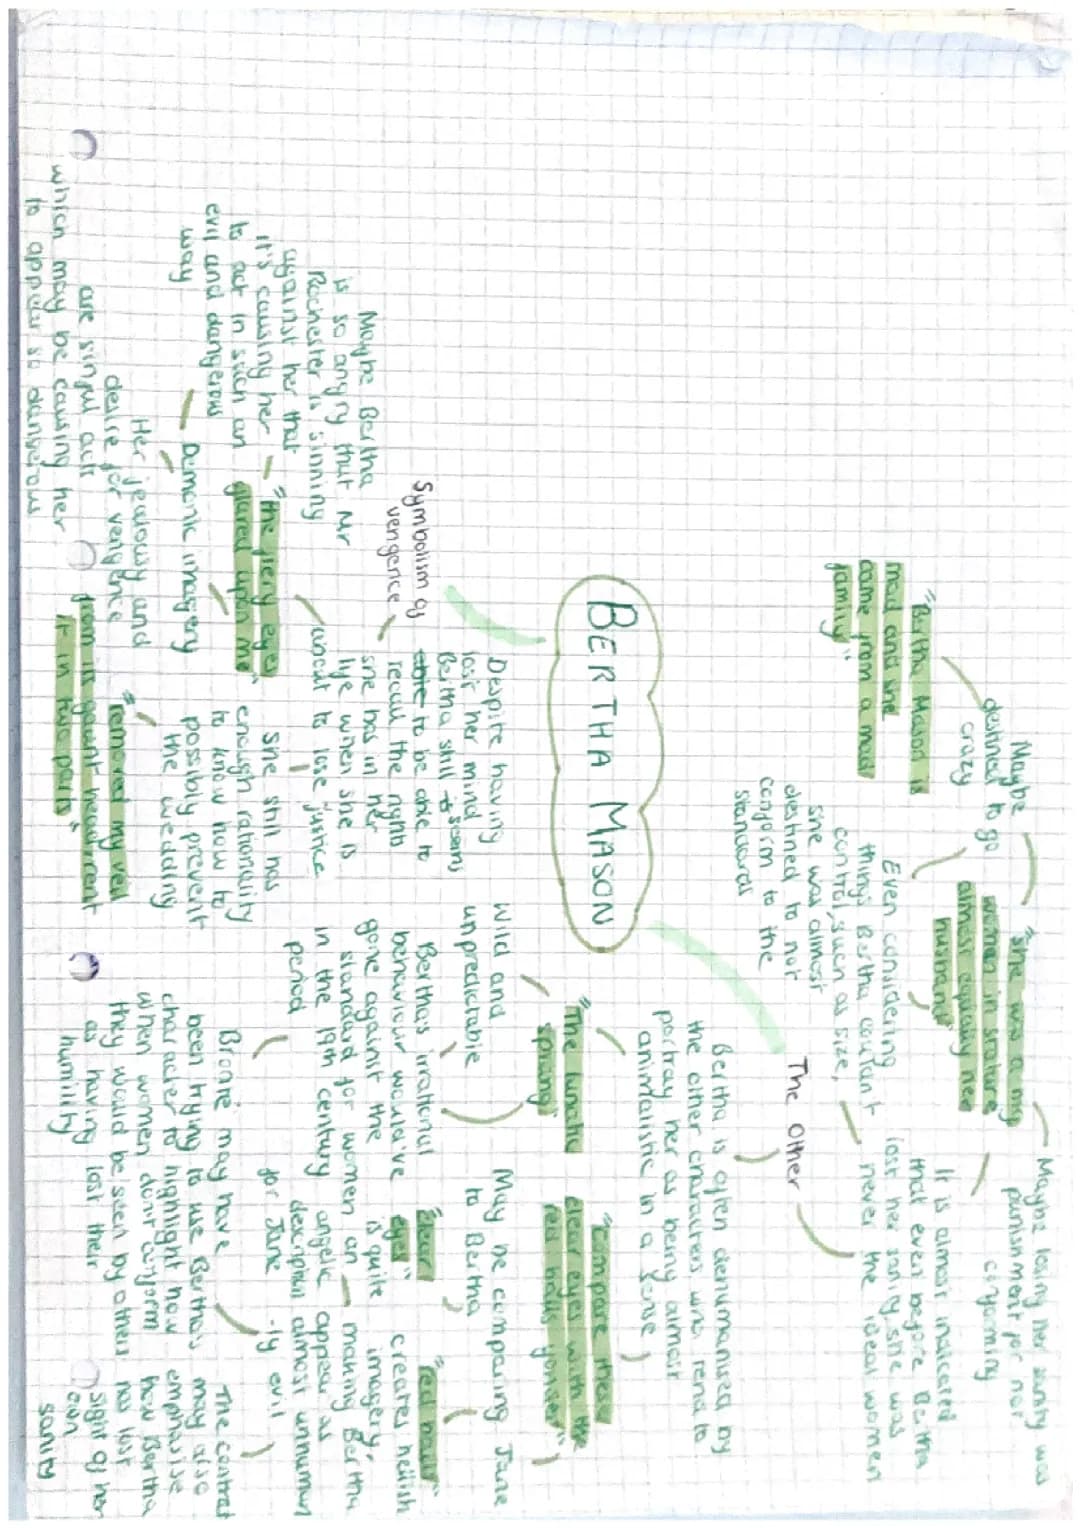 BERTHA MASON
The Other
"Bertha Mason is
mad and she
came from a mad
family"
Maybe
destined to go
crazy
"She was a big
woman in stature
almost equalling her
husband"
Even considering
things Bertha couldn't
control, such as size,
she was almost
destined to not
conform to the
standards
Maybe losing her sanity was
punishment for not
conformity
It is almost indicated
that even before Bertha
lost her sanity, she was
never the ideal women
Bertha is often dehumanised by
the other characters who tend to
portray her as being almost
animalistic in a sense
"The lunatic
sprang"
Wild and
unpredictable
Bertha's irrational
behaviour would've
gone against the
standard for women
in the 19th century
period
Bronte may have
been trying to use Bertha's
character to highlight how
when women don't conform
they would be seen by others
as having lost their
humility
"compare these
clear eyes with the
red balls yonder"
May be comparing Jane
to Bertha
"clear
eyes"
is quite
an
angelic
description
for Jane
"red balls"
creates hellish
imagery,
making Bertha
appear as
almost unhuman
-ly evil
The contrast
may also
emphasise
how Bertha
has lost
sight of her
own
sanity
Symbolism of
vengence
Despite having
lost her mind
Bertha still seems
to be able to
recall the rights
she has in her
life when she is
about to lose justice
She still has
enough rationality
to know how to
possibly prevent
the wedding
"removed my veil
from its gaunt head, rent
it in two parts"
"the fiery eyes
glared upon me"
Maybe Bertha
is so angry that Mr
Rochester is sinning
against her that
it's causing her
to act in such an
evil and dangerous
way
Demonic imagery
Her jealousy and
desire for vengence
are sinful acts
which may be causing her
to appear so dangerous